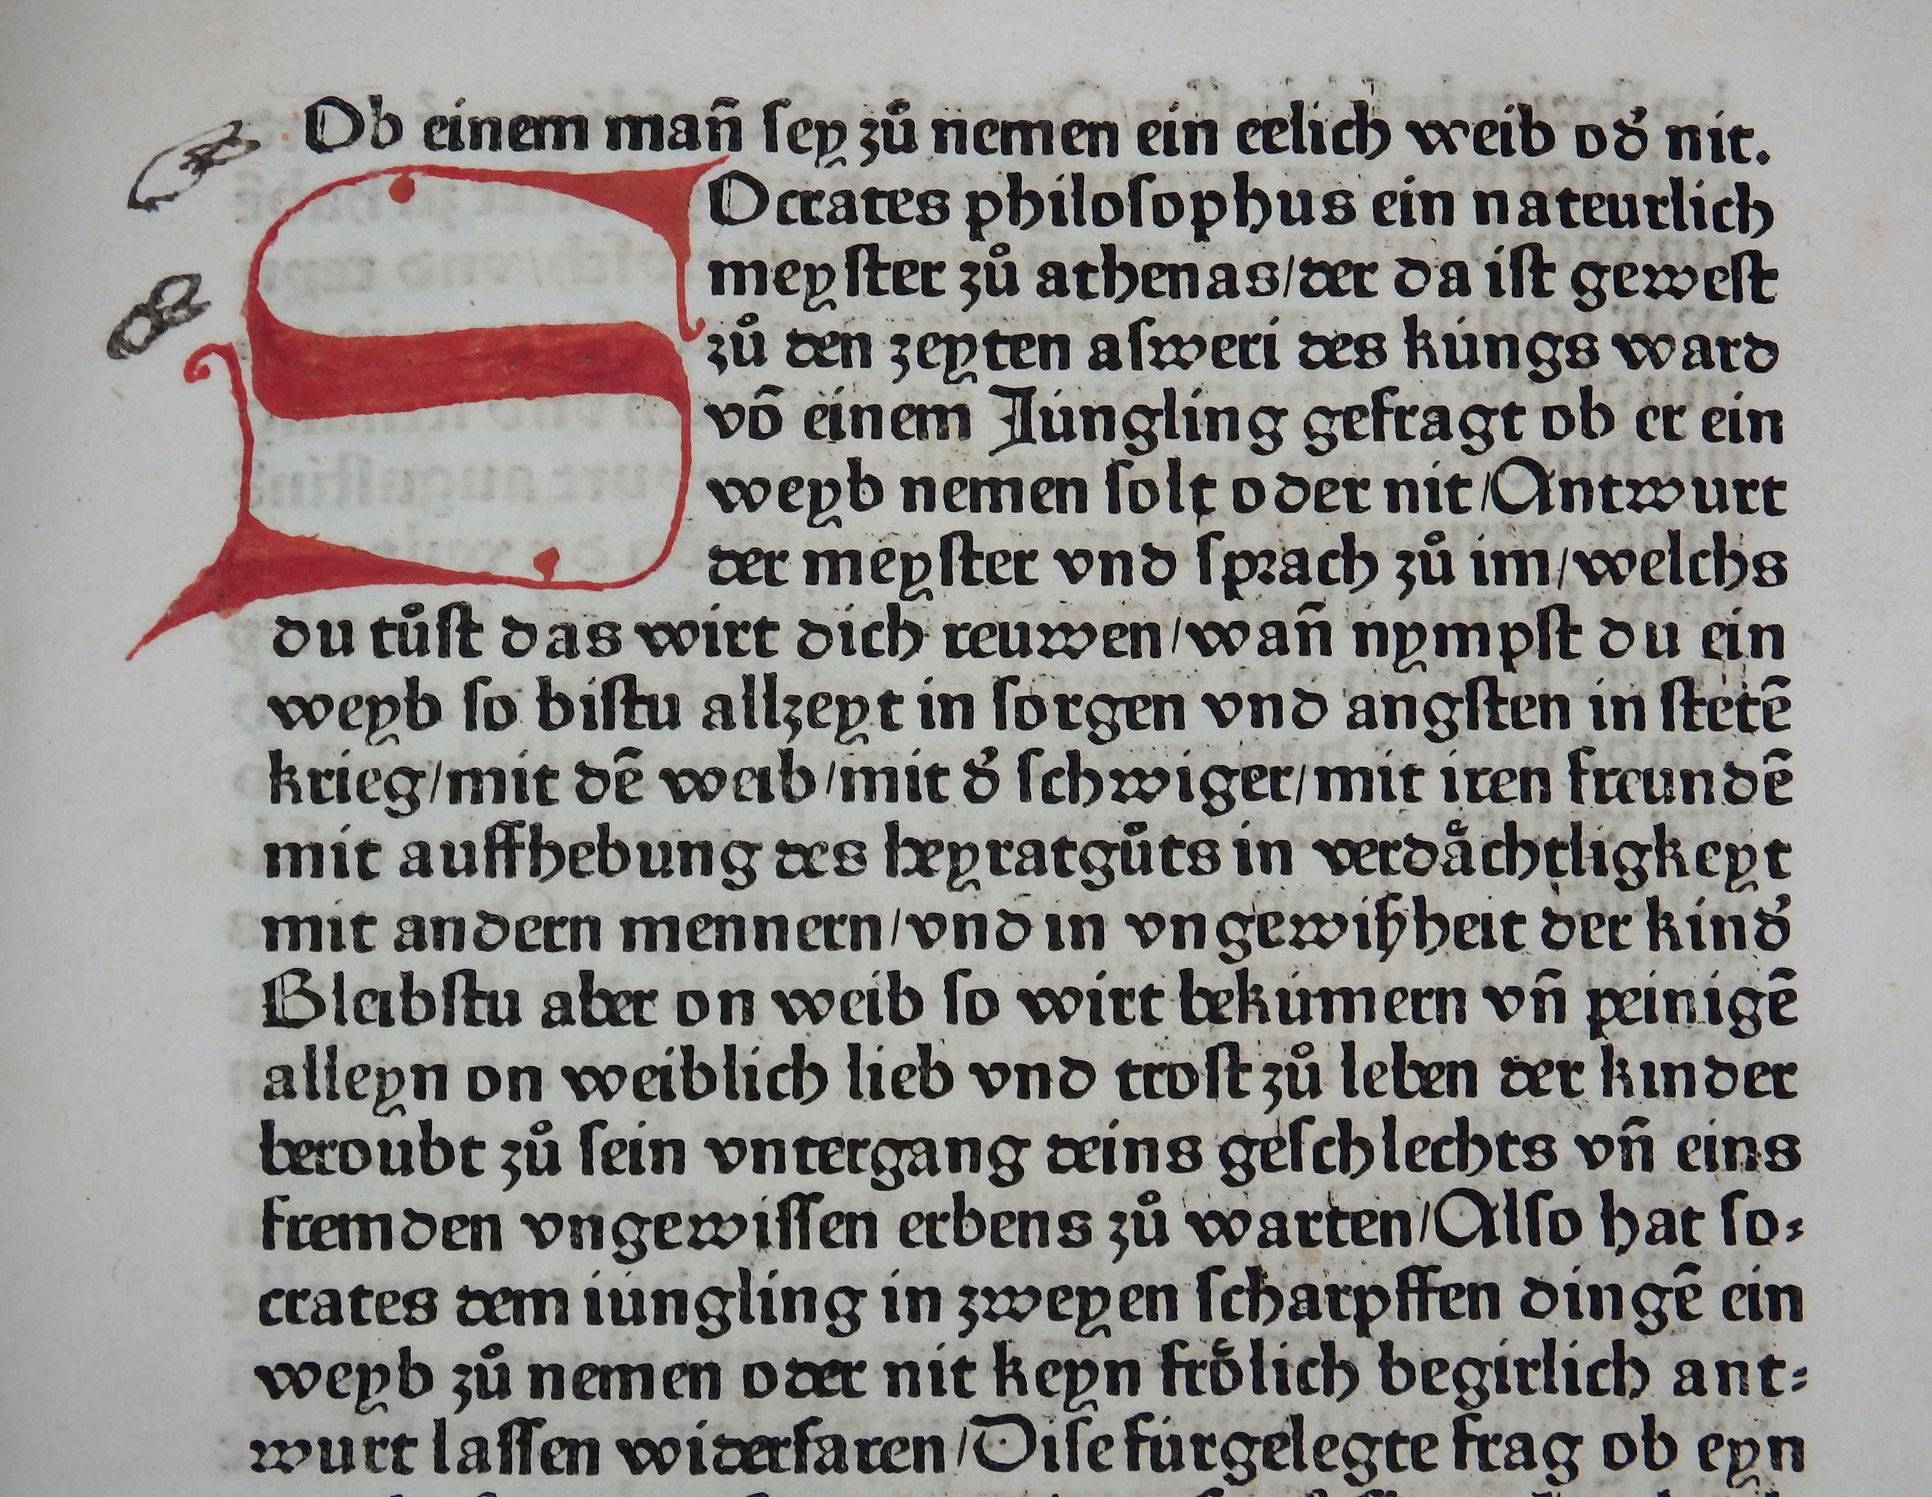 Ob einem man̄ ſey zů nemen ein eelich weib od̓ nit.
SOcrates philoſophus ein nateurlich
meyſter zů athenas/der da iſt geweſt
zů den zeyten aſweri des kúngs ward
vō einem Júngling gefragt ob er ein
weyb nemen ſolt oder nit/Antwurt
der meyſter vnd ſpꝛach zů im/welchs
du tůſt das wirt dich reuwen/wan̄ nympſt du ein
weyb ſo biſtu allzeyt in ſorgen vnd angſten in ſtetē
krieg/mit dē weib/mit d̓ ſchwiger/mit iren freundē
mit auffhebung des heyratgůts in verdaͤchtligkeyt
mit andern mennern/vnd in vngewißheit der kind̓
Bleibſtu aber on weib ſo wirt bekúmern vn̄ peinigē
alleyn on weiblich lieb vnd troſt zů leben der kinder
beroubt zů ſein vntergang deins geſchlechts vn̄ eins
fremden vngewiſſen erbens zů warten/Alſo hat ſo⸗
crates dem iúngling in zweyen ſcharpffen dingē ein
weyb zů nemen oder nit keyn froͤlich begirlich ant⸗
wurt laſſen widerfaren/Diſe fúrgelegte frag ob eyn